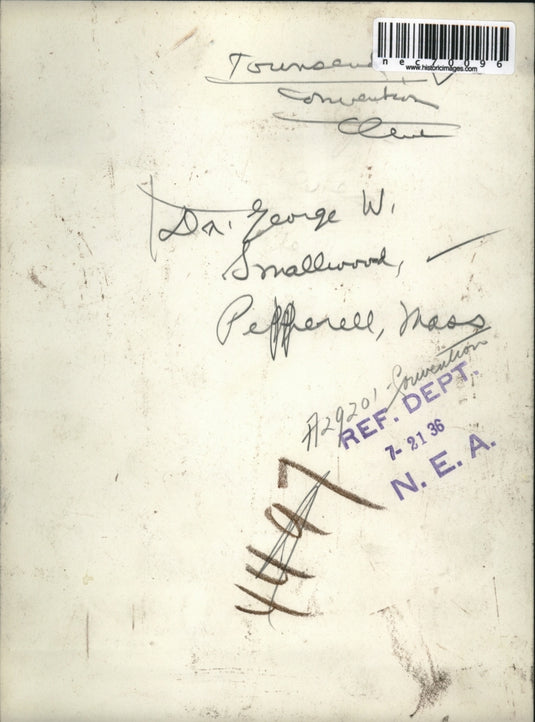 nec70096
www.historicimages.com
Townsend
Convention
Cleve
Dr. George W.
Smallwood,
Pepperell, Mass
A29201 - Convention
REF. DEPT.
7-21 36
N. E. A.
4497